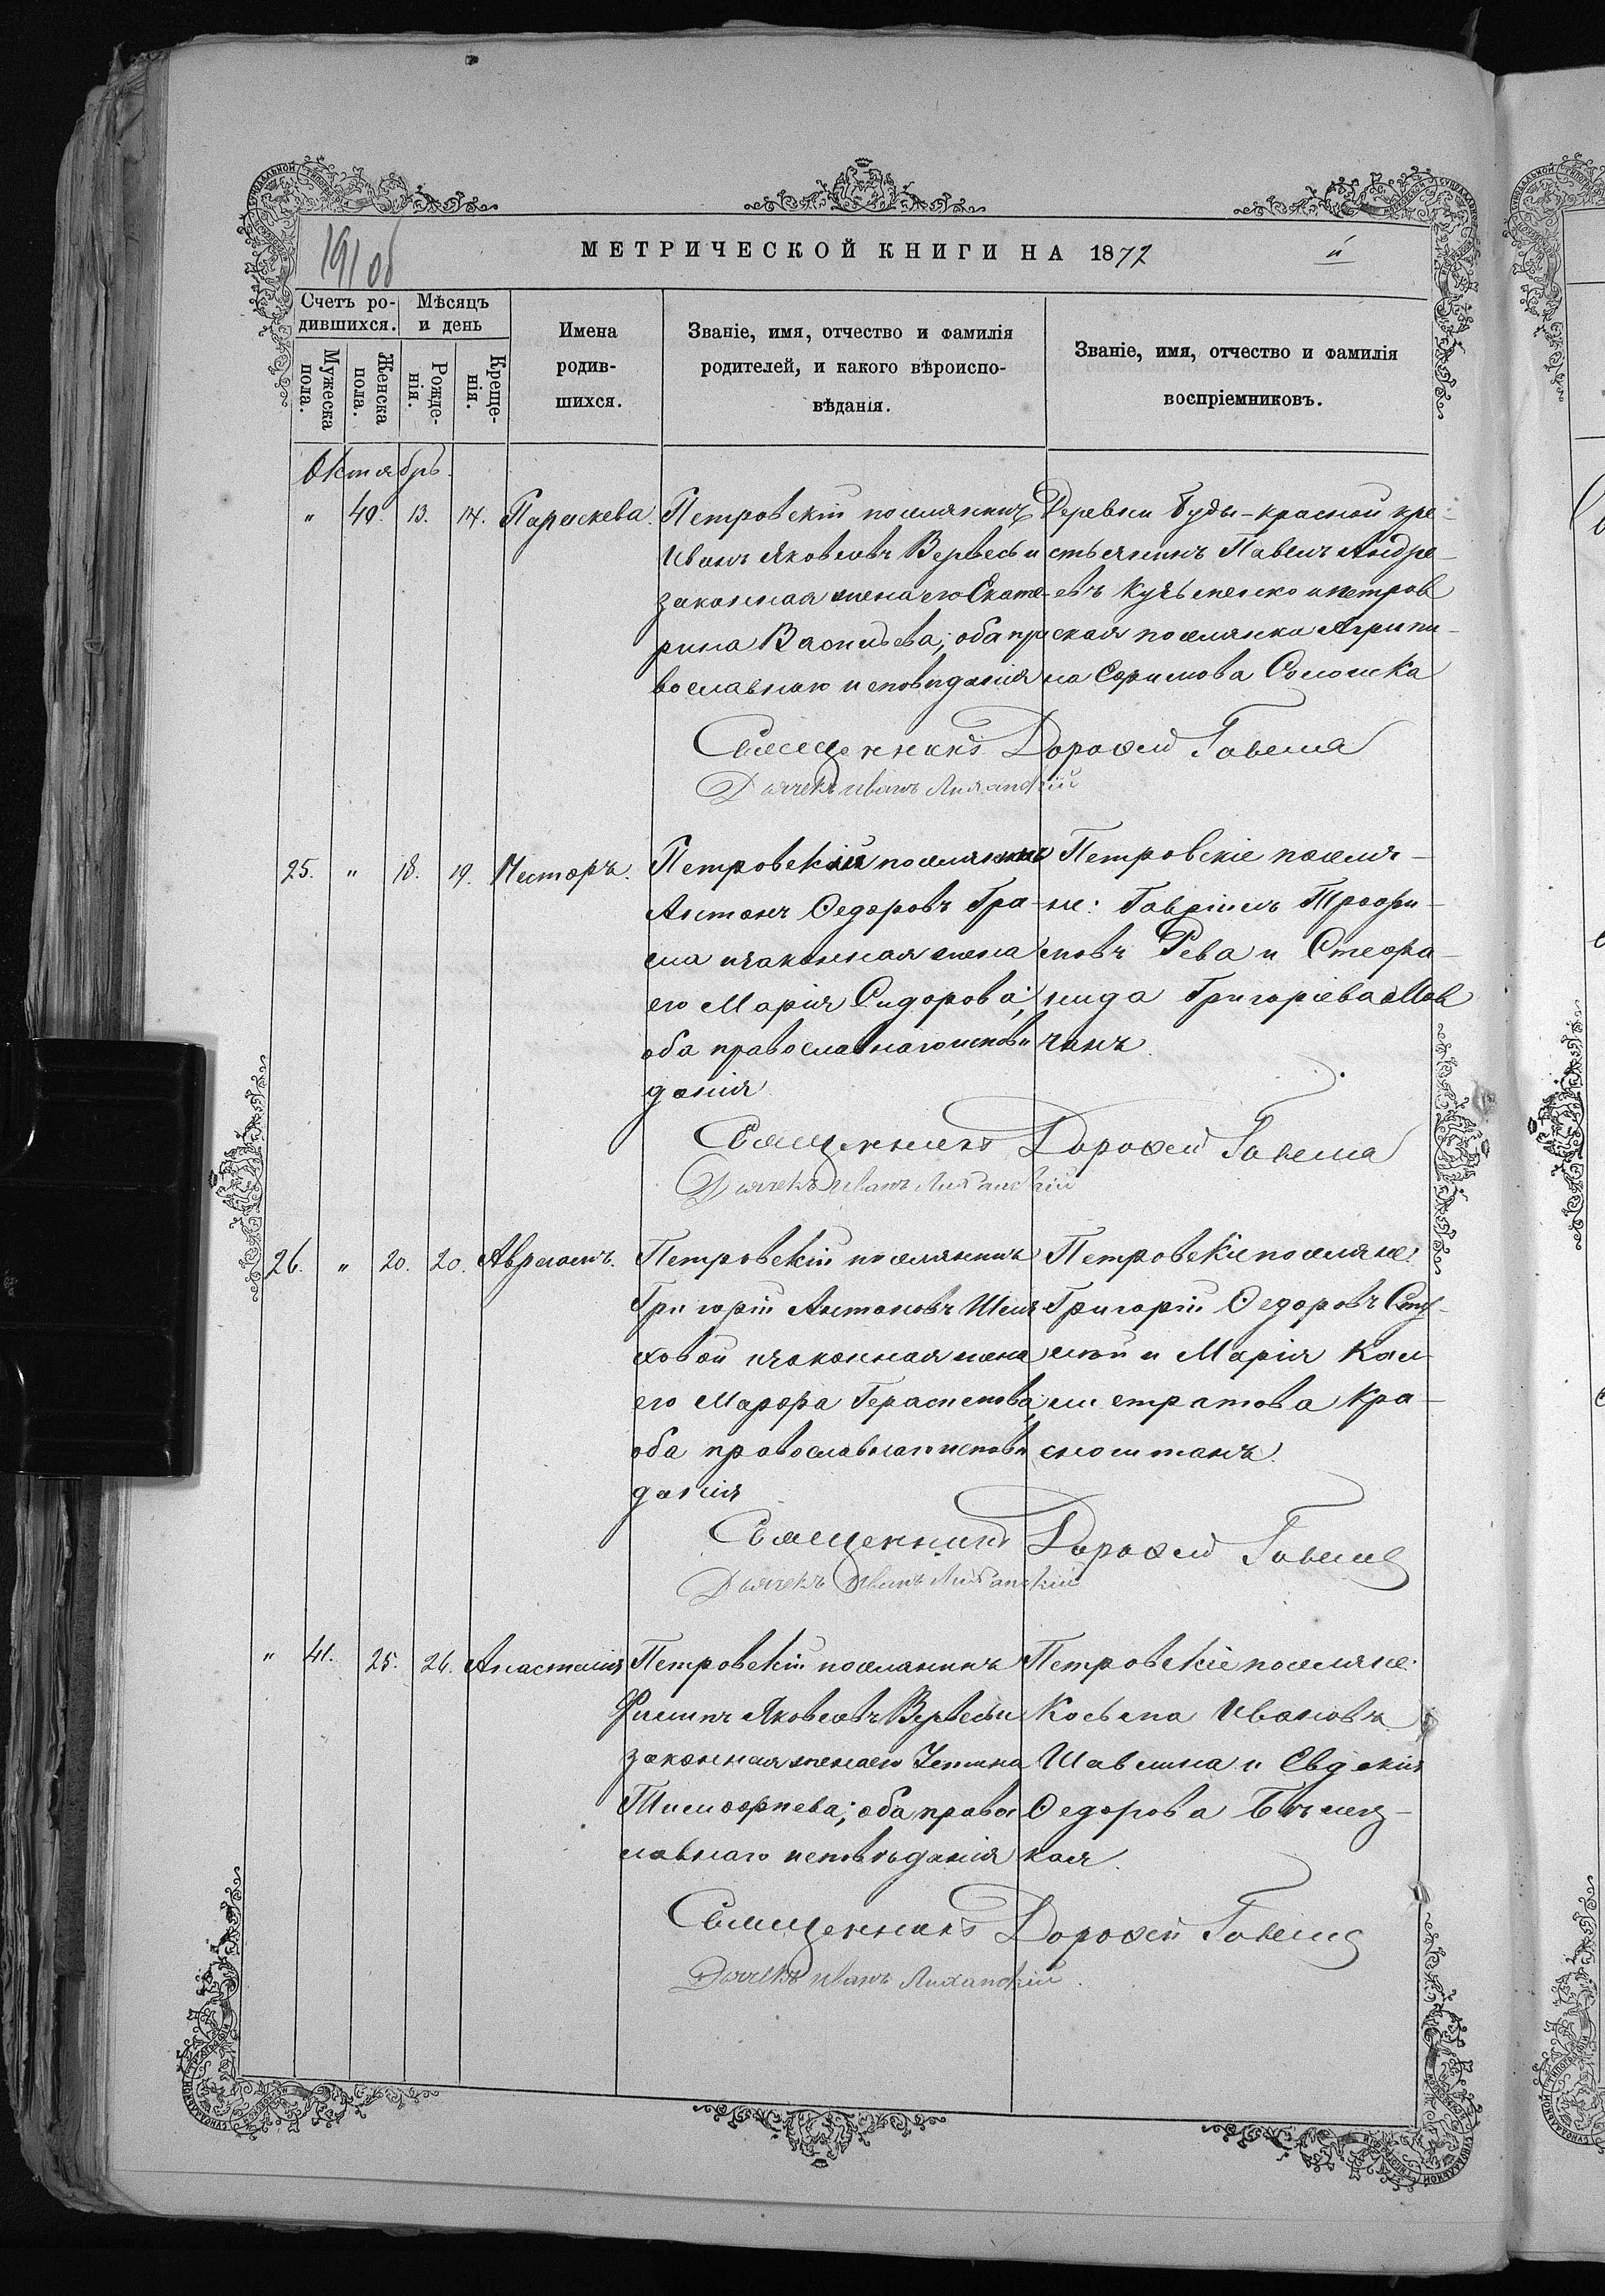 191 об
МЕТРИЧЕСКОЙ КНИГИ НА 1877
Счетъ ро-
дившихся.
Мѣсяцъ
и день
Мужеска
пола.
Женска
пола.
Рожде-
нія.
Креще-
нія.
Имена
родив-
шихся.
Званіе, имя, отчество и фамилія
родителей, и какого вѣроиспо-
вѣданія.
Званіе, имя, отчество и фамилія
воспріемниковъ.
Октябрь.
" 40. 13. 14. Параскева.
Петровскій поселянинъ
Иванъ Яковлевъ Вервесъ и
законная жена его Екате-
рина Васильева; оба пра
вославнаго исповѣданія
Деревни Буды-красной кре-
стьянинъ Павелъ Андре-
евъ Кузьменко и петров
ская поселянка Агрипи-
на Ефимова
Священникъ Дорофей Говеша
Дьячекъ Иванъ Лиханскій
25. " 18. 19. Несторъ.
Петровскій поселянинъ
Антонъ Ѳедоровъ Гра-
ма и законная жена
его Марія Сидорова;
оба православнаго исповѣ
данія
Петровскіе поселя-
не: Гавріилъ Трофи-
мовъ Рева и Стефа-
нида Григоріева Мов
чанъ.
Священникъ Дорофей Говеша
Дьячекъ Иванъ Лиханскій
26. " 20. 20. Авраамъ.
Петровскій поселянинъ
Григорій Антоновъ Шеля
ховой и законная жена
его Марфа Герасимова;
оба православнаго исповѣ
данія
Петровскіе поселяне:
Григорій Ѳедоровъ
и Марія Кали
стратова Кра-
сноштанъ.
Священникъ Дорофей Говеша
Дьячекъ Иванъ Лиханскій
" 41. 25. 26. Анастасія
Петровскій поселянинъ
Филипъ Яковлевъ Вервесъ и
законная жена его Устина
Тимофеева; оба правос
лавнаго исповѣданія
Петровскіе поселяне:
Косьма Ивановъ
Шавшина и Евдокія
Ѳедорова
кая.
Священникъ Дорофей Говеша
Дьячекъ Иванъ Лиханскій